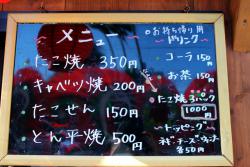 メニュー
たこ焼 350円
キャベツ焼 200円
たこせん 150円
とん平焼 500円
お持ち帰り用
ドリンク
コーラ 150円
お茶 150円
たこ焼3パック
1000円
トッピング
ネギ・チーズ・
各50円